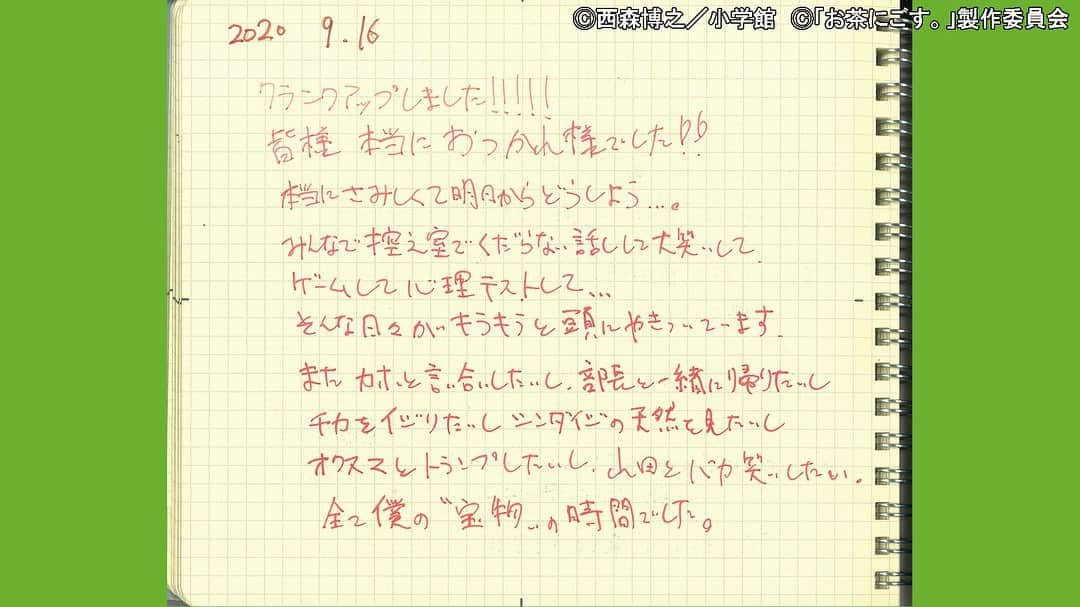 ©西森博之／小学館 ©「お茶にごす。」製作委員会
2020 9.16
クランクアップしました!!!!!
皆様 本当に おつかれ様でした!!
本当にさみしくて明日からどうしよう...。
みんなで控え室でくだらない話しして大笑いして
ゲームして心理テストして...
そんな日々がもうもうと頭にやきついています.
また カホと言い合いしたいし、部長と一緒に帰りたいし
チカをイジりたいし シンダイジの天然を見たいし
オクヌマとトランプしたいし、山田とバカ笑いしたい。
全て僕の〝宝物〟の時間でした。